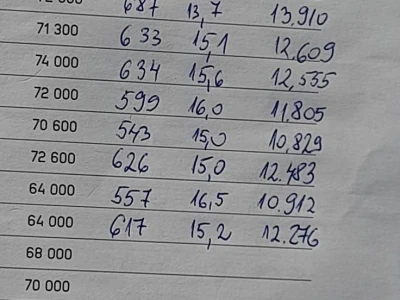 687 13,7 13.910
71 300 633 15,1 12.609
74 000 634 15,6 12,535
72 000 599 16,0 11,805
70 600 543 15,0 10.829
72 600 626 15,0 12.483
64 000 557 16,5 10.912
64 000 617 15,2 12.276
68 000
70 000